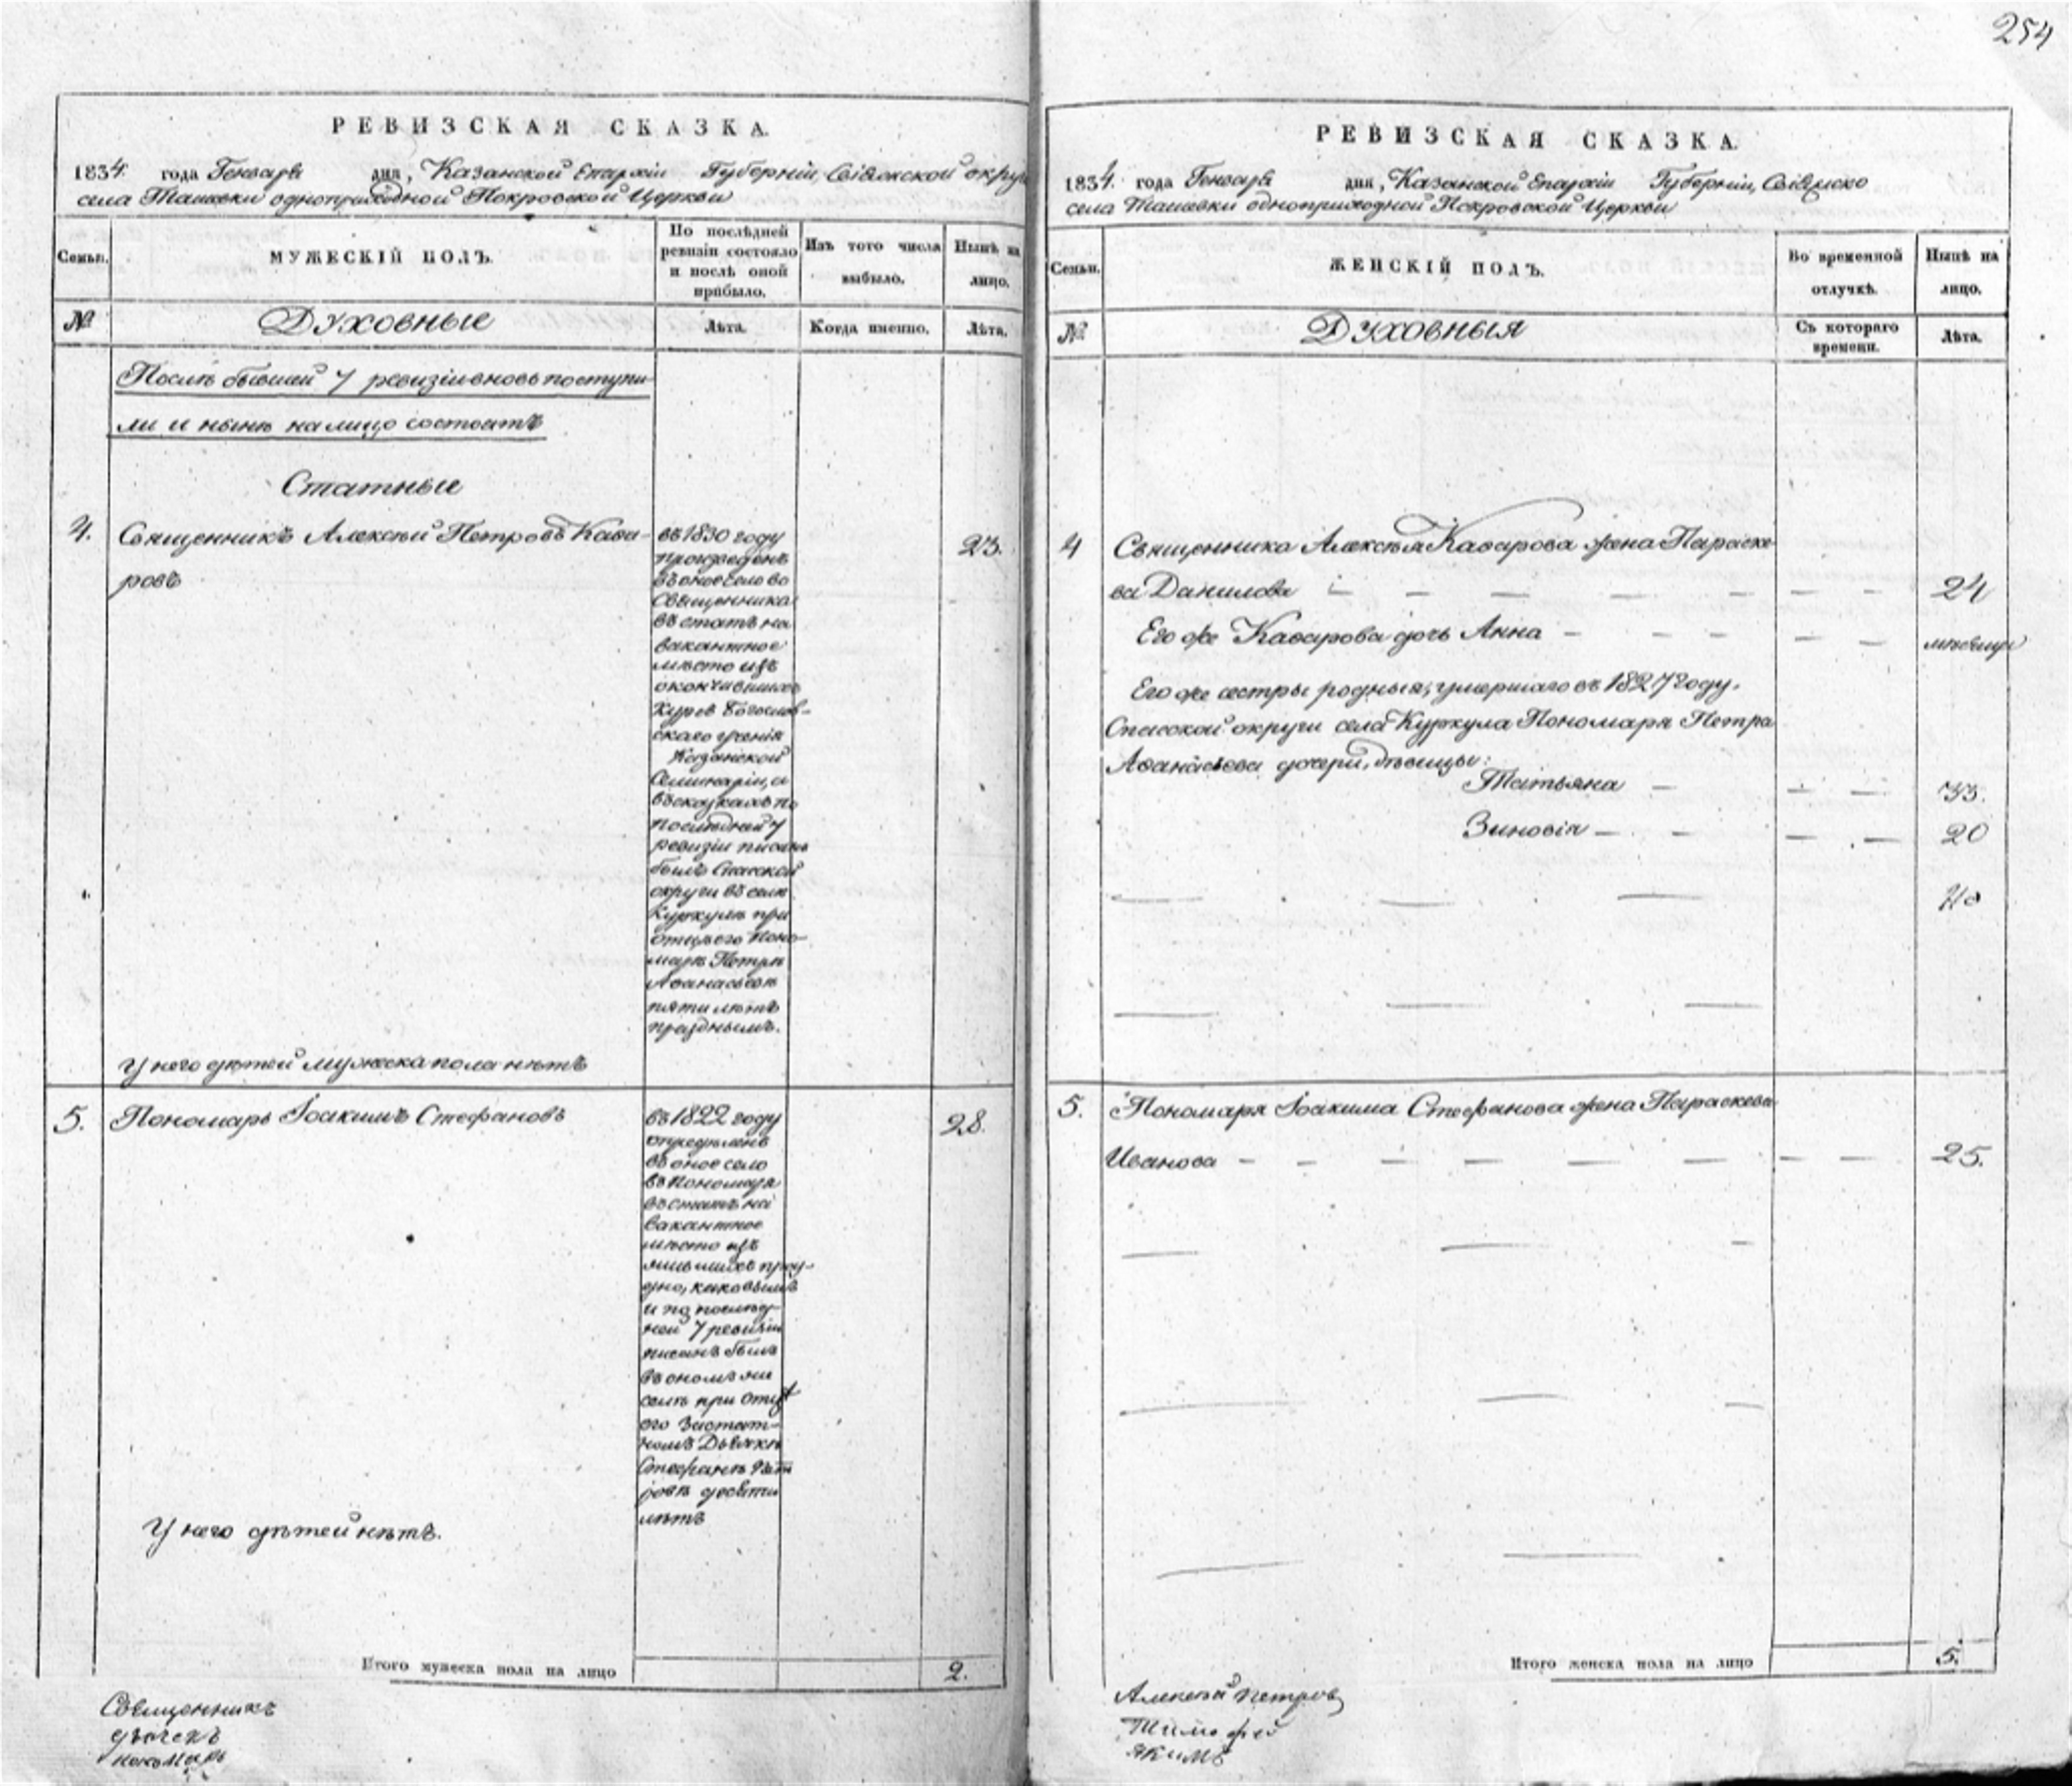 254
РЕВИЗСКАЯ СКАЗКА.
1834. года Генваря дня, Казанской Епархіи Губерніи, Свіяжской округи
села Ташевки одноприходной Покровской Церкви
Семьи.
МУЖЕСКІЙ ПОЛЪ.
По послѣдней
ревизіи состояло
и послѣ оной
прибыло.
Изъ того числа
выбыло.
Нынѣ на
лицо.
№
Духовные
Лѣта.
Когда именно.
Лѣта.
Послѣ бывшей 7 ревизіи вновь поступи-
ли и нынѣ на лицо состоятъ
Статные
4.
Священникъ Алексѣй Петровъ Каѳа-
ровъ
въ 1830 году
произведенъ
въ оное село во
Священника
въ статъ на
вакантное
мѣсто изъ
окончившихъ
курсъ Богослов-
скаго ученія
Казанской
Семинаріи, а
въ сказкахъ по
послѣдней 7
ревизіи писанъ
былъ Спасской
округи въ селѣ
Куркулѣ при
отцѣ его Поно-
марѣ Петрѣ
Аѳанасьевѣ
пяти лѣтъ
празднымъ.
23.
У него дѣтей мужеска пола нѣтъ
5.
Пономарь Іоакимъ Стефановъ
въ 1822 году
опредѣленъ
въ оное село
въ Пономаря
въ статъ на
вакантное
мѣсто изъ
праз-
дно, каковымъ
и по послѣд-
ней 7 ревизіи
писанъ былъ
въ ономъ же
селѣ при отцѣ
его Заштат-
номъ Дьячкѣ
Стефанѣ
десяти
лѣтъ
28.
У него дѣтей нѣтъ.
Итого мужеска пола на лицо
2.
Священникъ
дьячекъ
пономарь
РЕВИЗСКАЯ СКАЗКА.
1834. года Генваря дня, Казанской Епархіи Губерніи, Свіяжско
села Ташевки одноприходной Покровской Церкви
Семьи.
ЖЕНСКІЙ ПОЛЪ.
Во временной
отлучкѣ.
Нынѣ на
лицо.
№
Духовныя
Съ котораго
времени.
Лѣта.
4
Священника Алексѣя Каѳарова жена Параске-
ва Данилова — 24
Его же Каѳарова дочь Анна —
Его же сестры родныя, умершаго въ 1827 году.
Спасской округи села Куркула Пономаря Петра
Аѳанасьева дочери, дѣвицы:
Татьяна — 33.
Зиновія — 20
5.
Пономаря Іоакима Стефанова жена Параскева
Иванова — 25.
Итого женска пола на лицо
5.
Алексѣй Петровъ
Тимофей
Якимъ